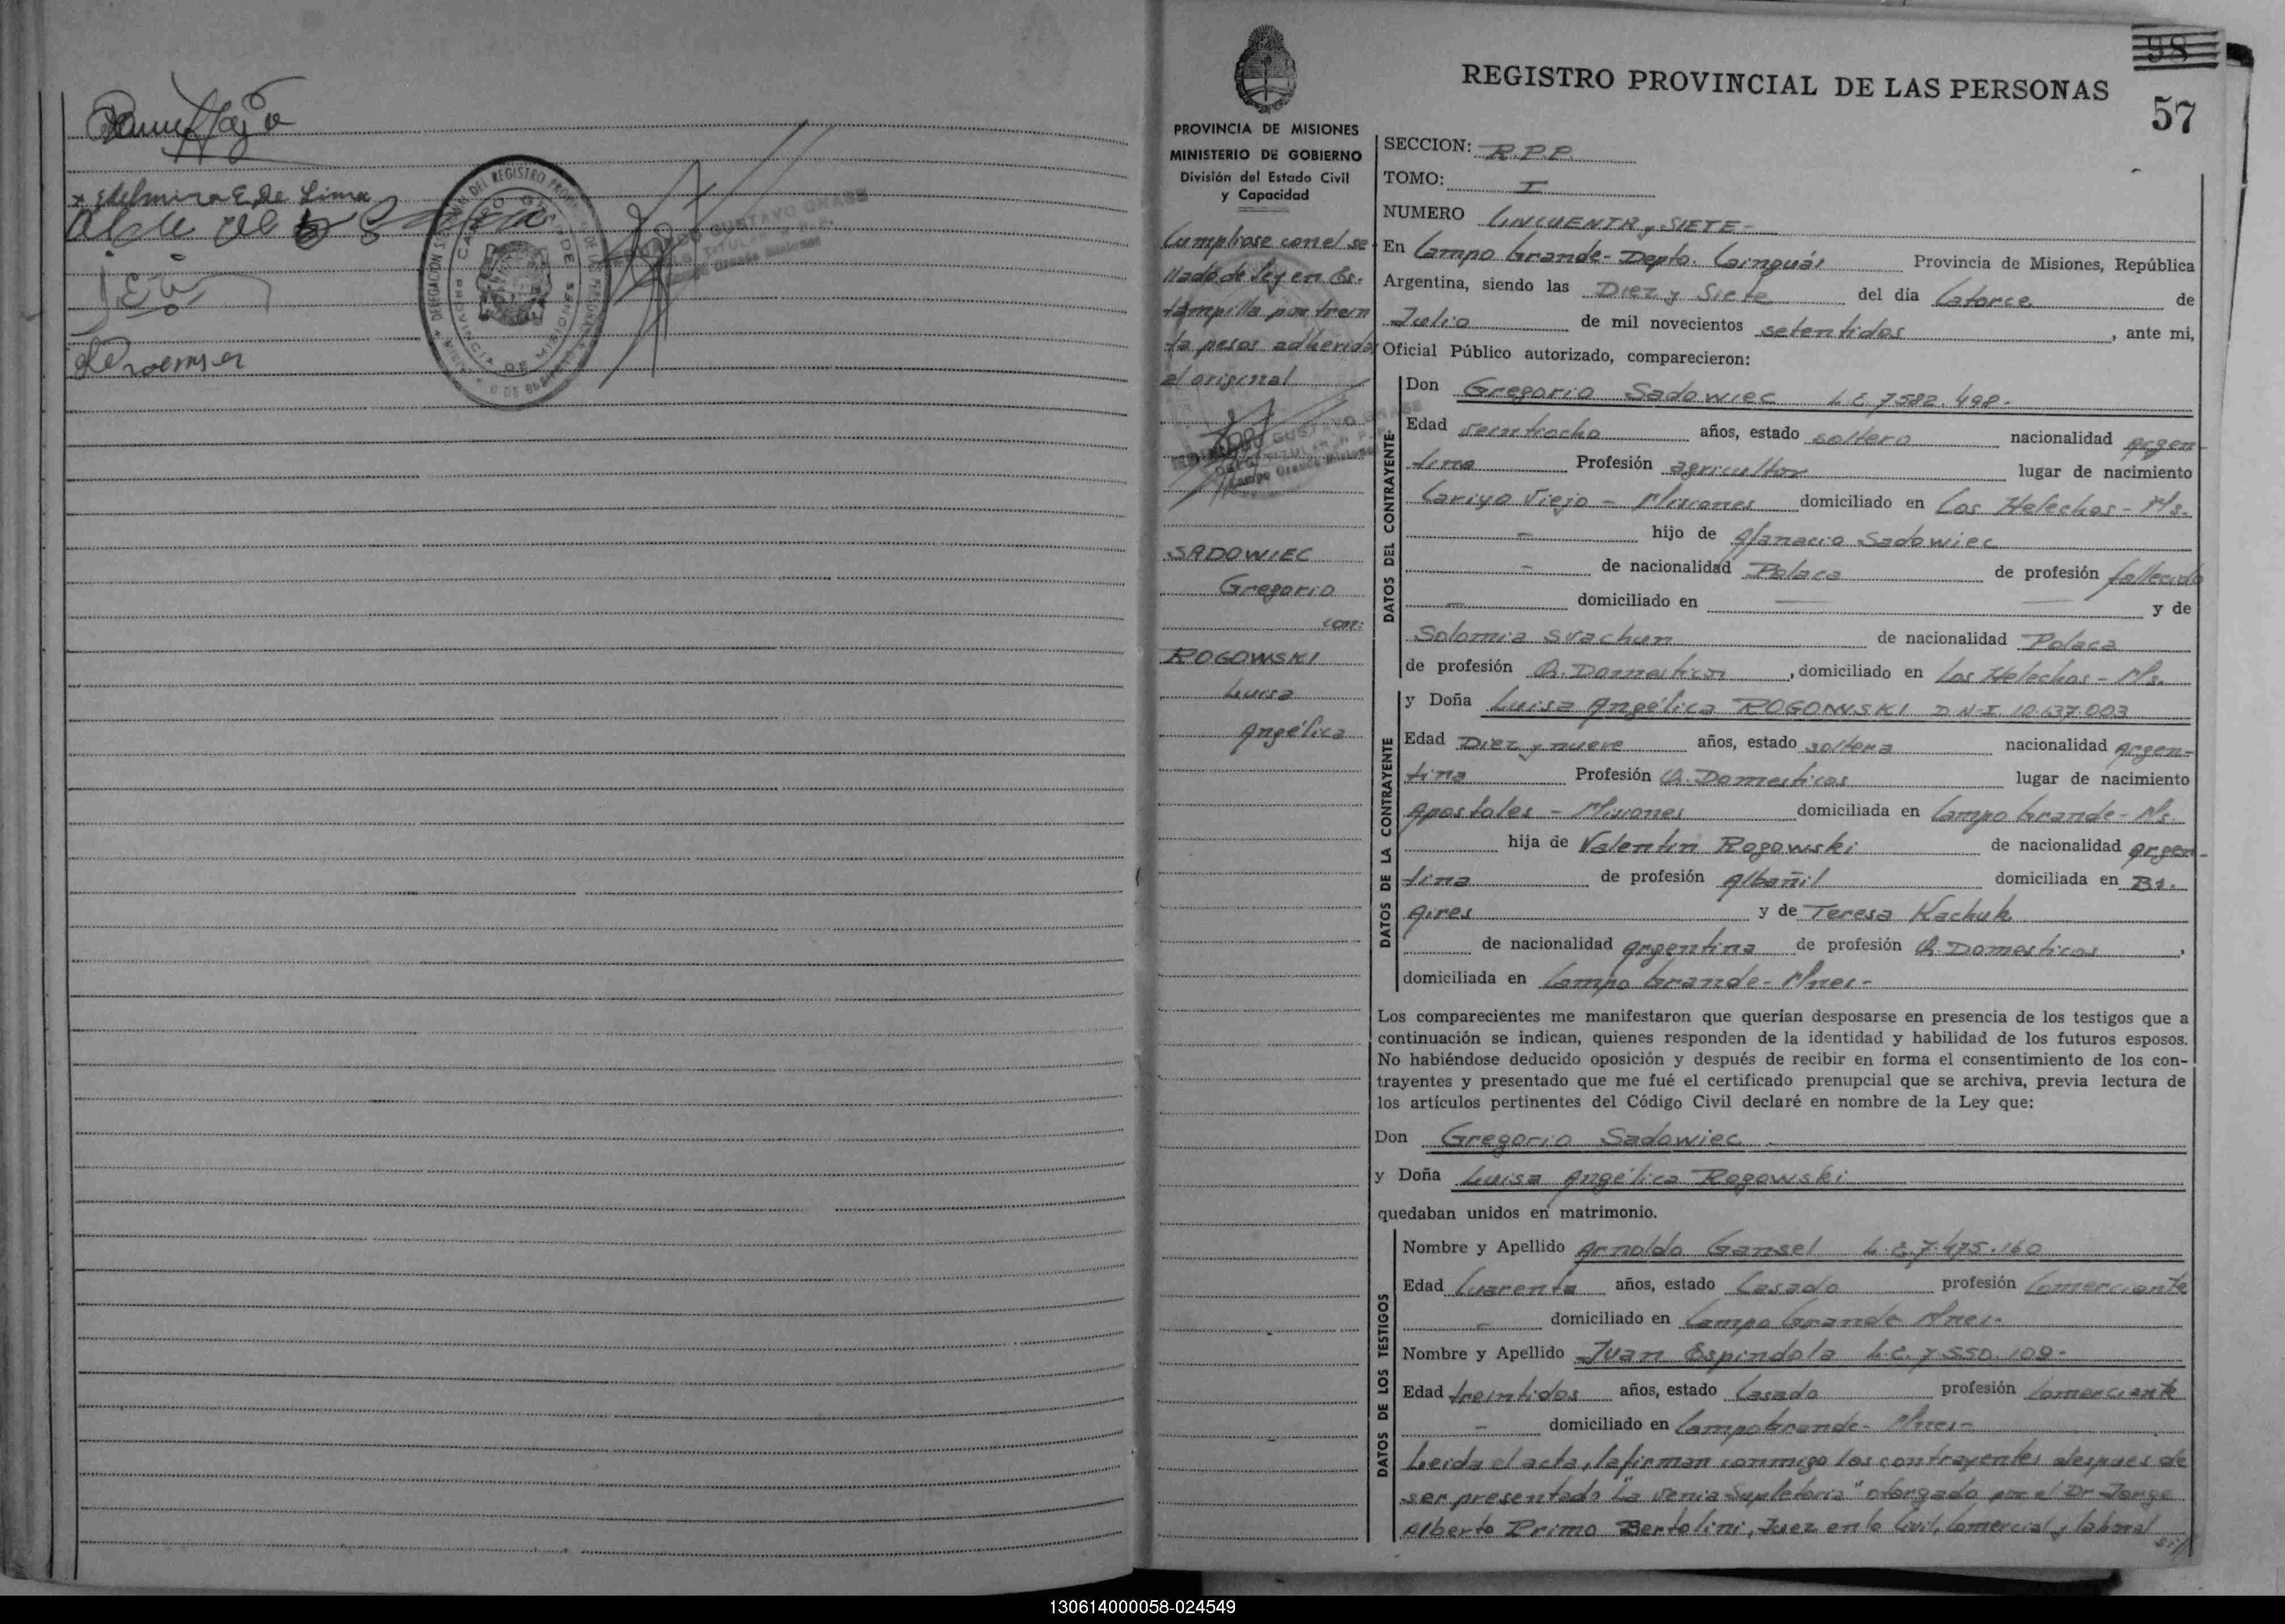 x Edelmira E. De Lima
98
REGISTRO PROVINCIAL DE LAS PERSONAS
57
PROVINCIA DE MISIONES
MINISTERIO DE GOBIERNO
División del Estado Civil
y Capacidad
Cumpliose con el se
llado de ley en Es-
tampilla por trein
ta pesos adherida
al original
SADOWIEC
Gregorio
con:
ROGOWSKI
Luisa
Angélica
SECCION: R.P.P.
TOMO: I
NUMERO CINCUENTA y SIETE-
En Campo Grande- Depto. Cainguás Provincia de Misiones, República
Argentina, siendo las Diez y Siete del día Catorce de
Julio de mil novecientos setentidos, ante mi,
Oficial Público autorizado, comparecieron:
DATOS DEL CONTRAYENTE
Don Gregorio Sadowiec L.E. 7582.498-
Edad veintiocho años, estado soltero nacionalidad argen-
tina Profesión agricultor lugar de nacimiento
Viejo - Misiones domiciliado en Los Helechos - Ms.
- hijo de Afanacio Sadowiec
- de nacionalidad Polaca de profesión fallecido
- domiciliado en — y de
Solomia de nacionalidad Polaca
de profesión Q. Domesticos, domiciliado en Los Helechos - Ms.
DATOS DE LA CONTRAYENTE
y Doña Luisa Angélica ROGOWSKI D.N.I. 10.637.003
Edad Diez y nueve años, estado soltera nacionalidad argen-
tina Profesión Q. Domesticos lugar de nacimiento
Apostoles - Misiones domiciliada en Campo Grande- Ms.
hija de Valentin Rogowski de nacionalidad argen-
tina de profesión Albañil domiciliada en Bs.
Aires y de Teresa Kachuk
de nacionalidad argentina de profesión Q. Domesticos,
domiciliada en Campo Grande- Mnes-
Los comparecientes me manifestaron que querían desposarse en presencia de los testigos que a
continuación se indican, quienes responden de la identidad y habilidad de los futuros esposos.
No habiéndose deducido oposición y después de recibir en forma el consentimiento de los con-
trayentes y presentado que me fué el certificado prenupcial que se archiva, previa lectura de
los artículos pertinentes del Código Civil declaré en nombre de la Ley que:
Don Gregorio Sadowiec
y Doña Luisa Angélica Rogowski
quedaban unidos en matrimonio.
DATOS DE LOS TESTIGOS
Nombre y Apellido Arnoldo Gansel L.E. 7.475.160
Edad Cuarenta años, estado Casado profesión Comerciante
- domiciliado en Campo Grande Mnes-
Nombre y Apellido Juan Espindola L.E. 7.550.109-
Edad treintidos años, estado Casado profesión Comerciante
- domiciliado en Campo Grande- Mnes-
Leida el acta, la firman conmigo los contrayentes despues de
ser presentado "La Venia Supletoria" otorgado por el Dr Jorge
Alberto Primo Bertolini, Juez en lo Civil, Comercial y laboral
130614000058-024549